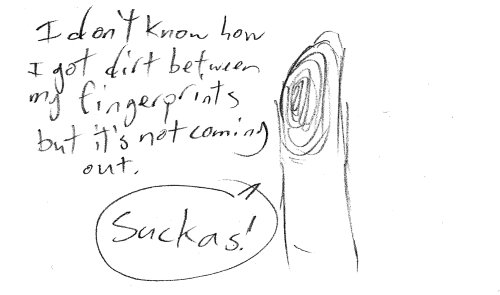 I don't know how
I got dirt between
my fingerprints
but it's not coming
out.
Suckas!